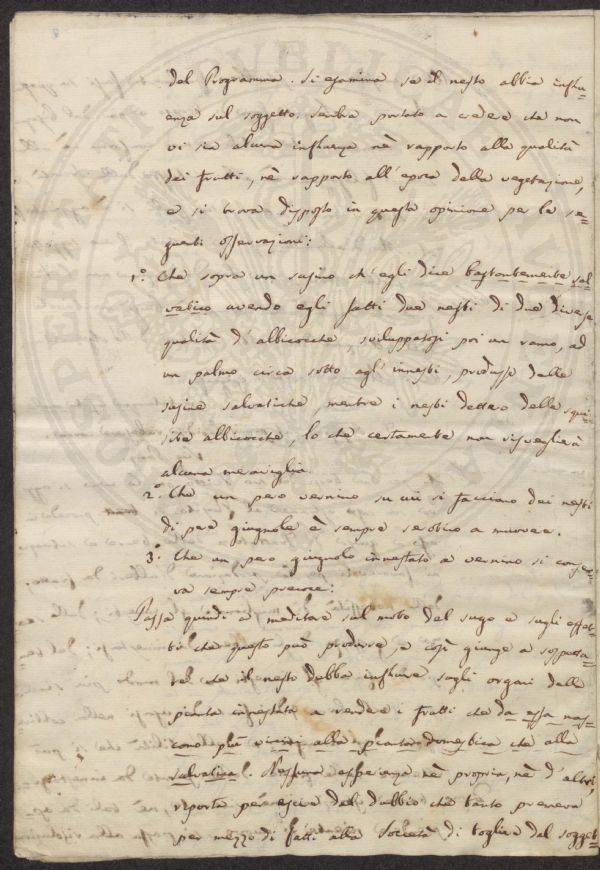 del Programma. Si esamina se il nesto abbia influ=
enza sul soggetto. Sembra portato a credere che non
vi sia alcuna influenza nè rapporto alla qualità
dei frutti, nè rapporto all'epoca della vegetazione,
e si trova disposto in questa opinione per le se=
guenti osservazioni:
1.° Che sopra un susino ch'egli dice bastantemente sal=
vatico avendo egli fatti due nesti di due diverse
qualità d'albicocche, sviluppatosi poi un ramo, ad
un palmo circa sotto agl'innesti, produsse delle
susine salvatiche, mentre i nesti dettero delle squi=
site albicocche, lo che certamente non risveglierà
alcuna meraviglia.
2.° Che un pero vernino su cui si facciano dei nesti
di pere giugnole è sempre serotino a muovere.
3.° Che un pero giugnolo innestato a vernino si conser=
va sempre precoce:
Passa quindi a meditare sul moto del sugo e sugli effet=
ti che questo può produrre e così giunge a sospetta=
re che il nesto debba influire sugli organi della
pianta innestata a rendere i frutti che da essa nas=
cono più vicini alla pianta domestica che alla
salvatica. Nessuna esperienza nè propria, nè d'altri,
riporta per escir dal dubbio che tanto premeva
per mezzo di fatti alla Società di togliere dal sogget=